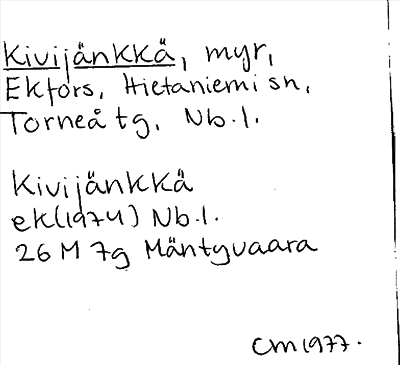 Kivijänkkä, myr,
Ekfors, Hietaniemi sn,
Torneå tg, Nb.l.
Kivijänkkä
ek(1974) Nb.l.
26 M 7g Mäntyvaara
CM 1977.